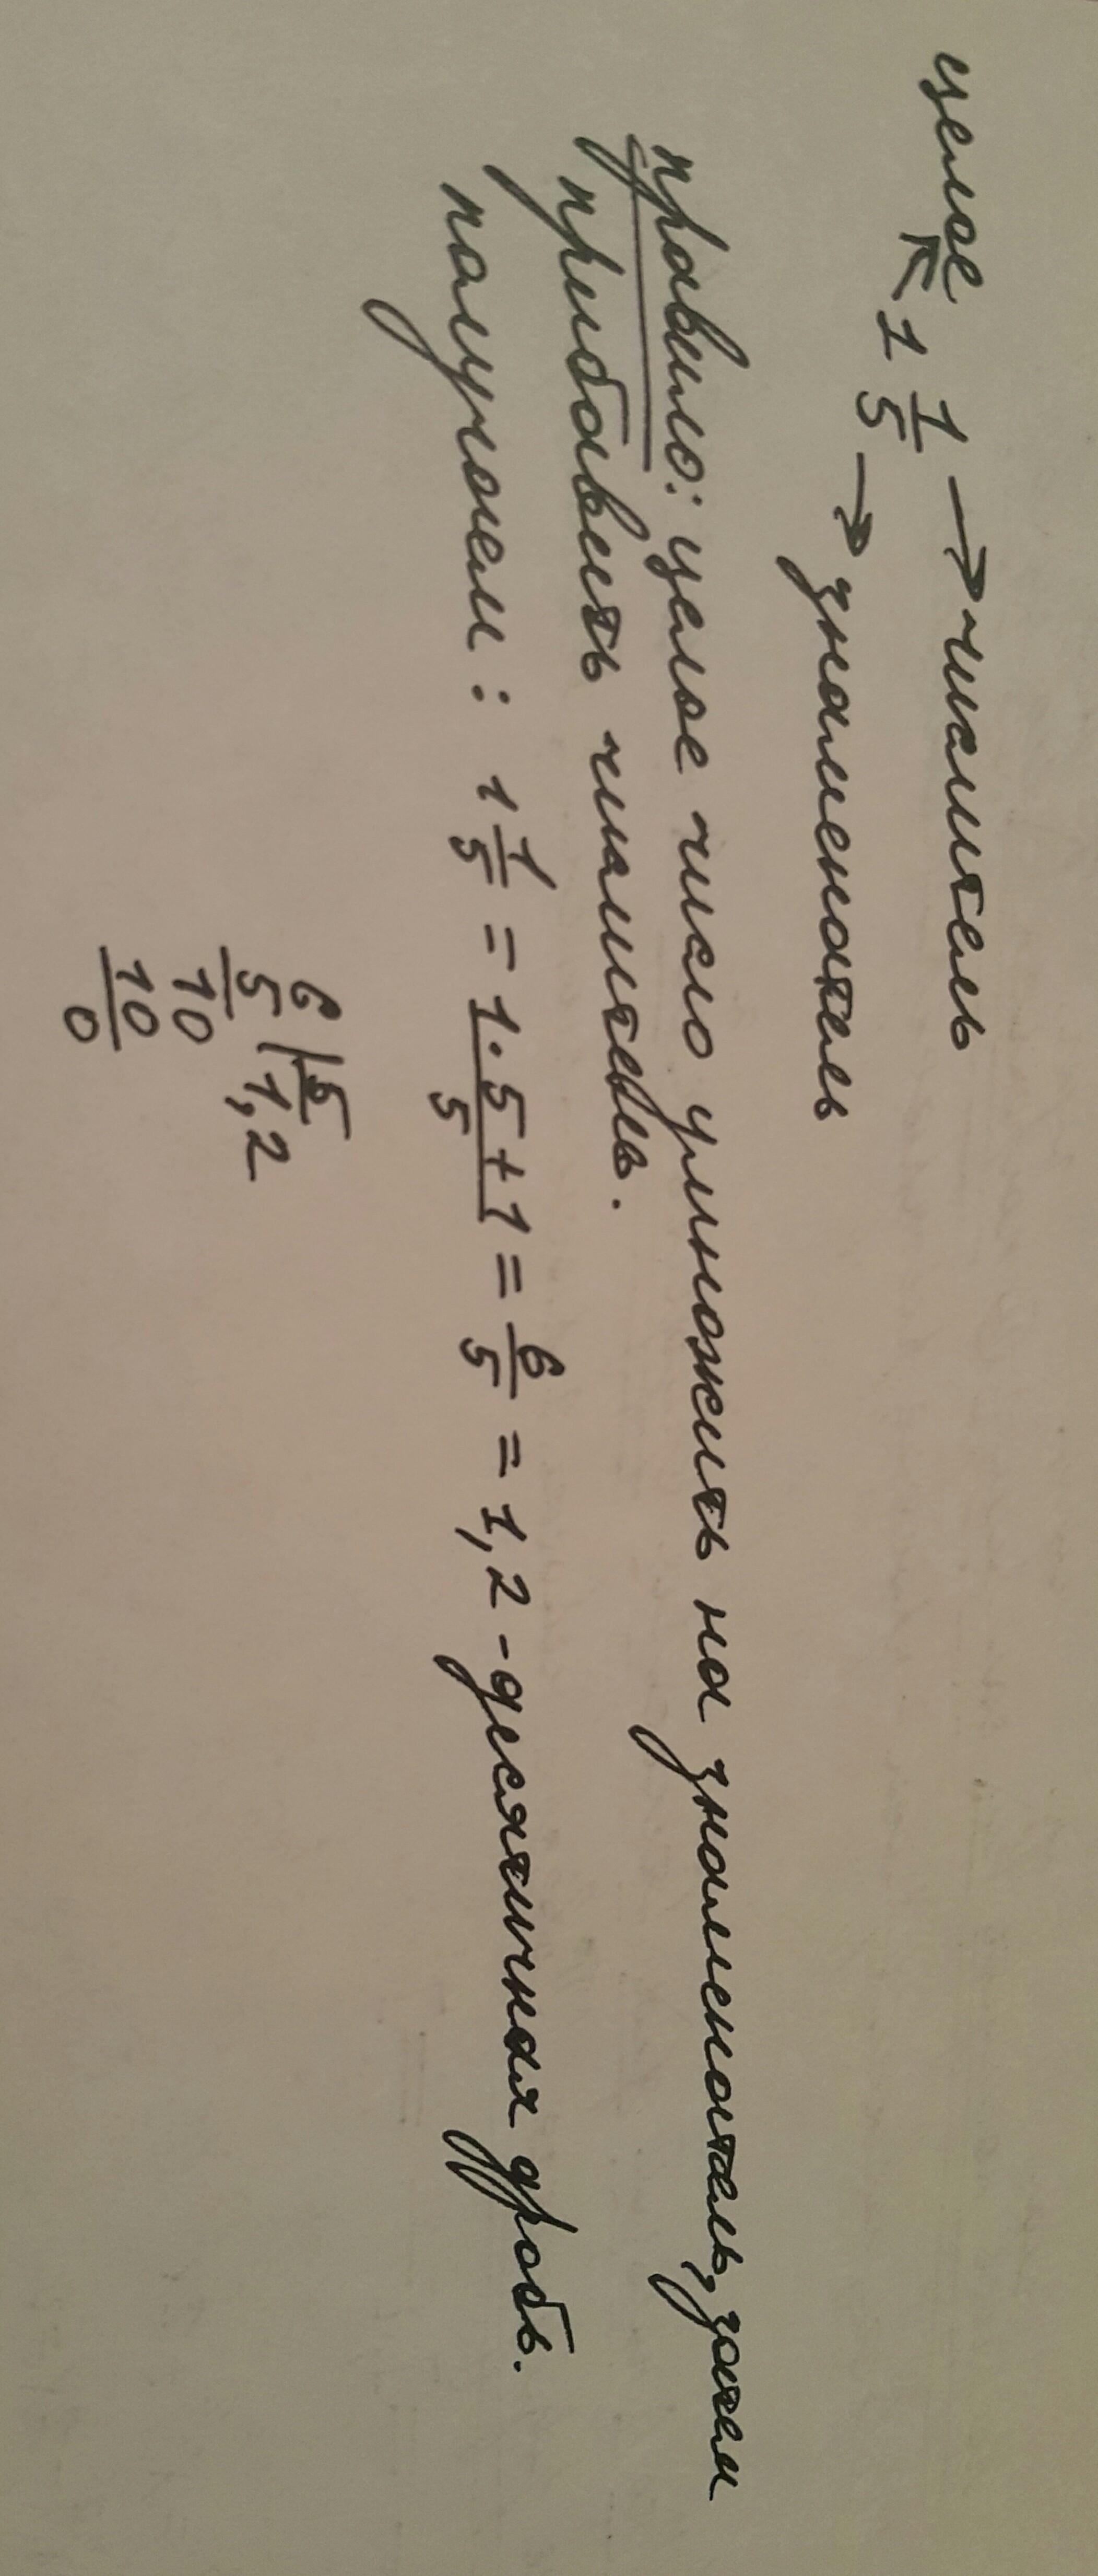 целое ← 1 1/5 → числитель
→ знаменатель
правило: целое число умножить на знаменатель, затем
прибавить числитель.
получаем: 1 1/5 = (1·5+1)/5 = 6/5 = 1,2 - десятичная дробь.
6 | 5
5 | 1,2
10
10
0